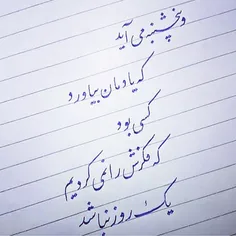 و پنجشنبه می آید
که یادمان بیاورد
کسی بود
که فکرش را نمی کردیم
یک روز نباشد